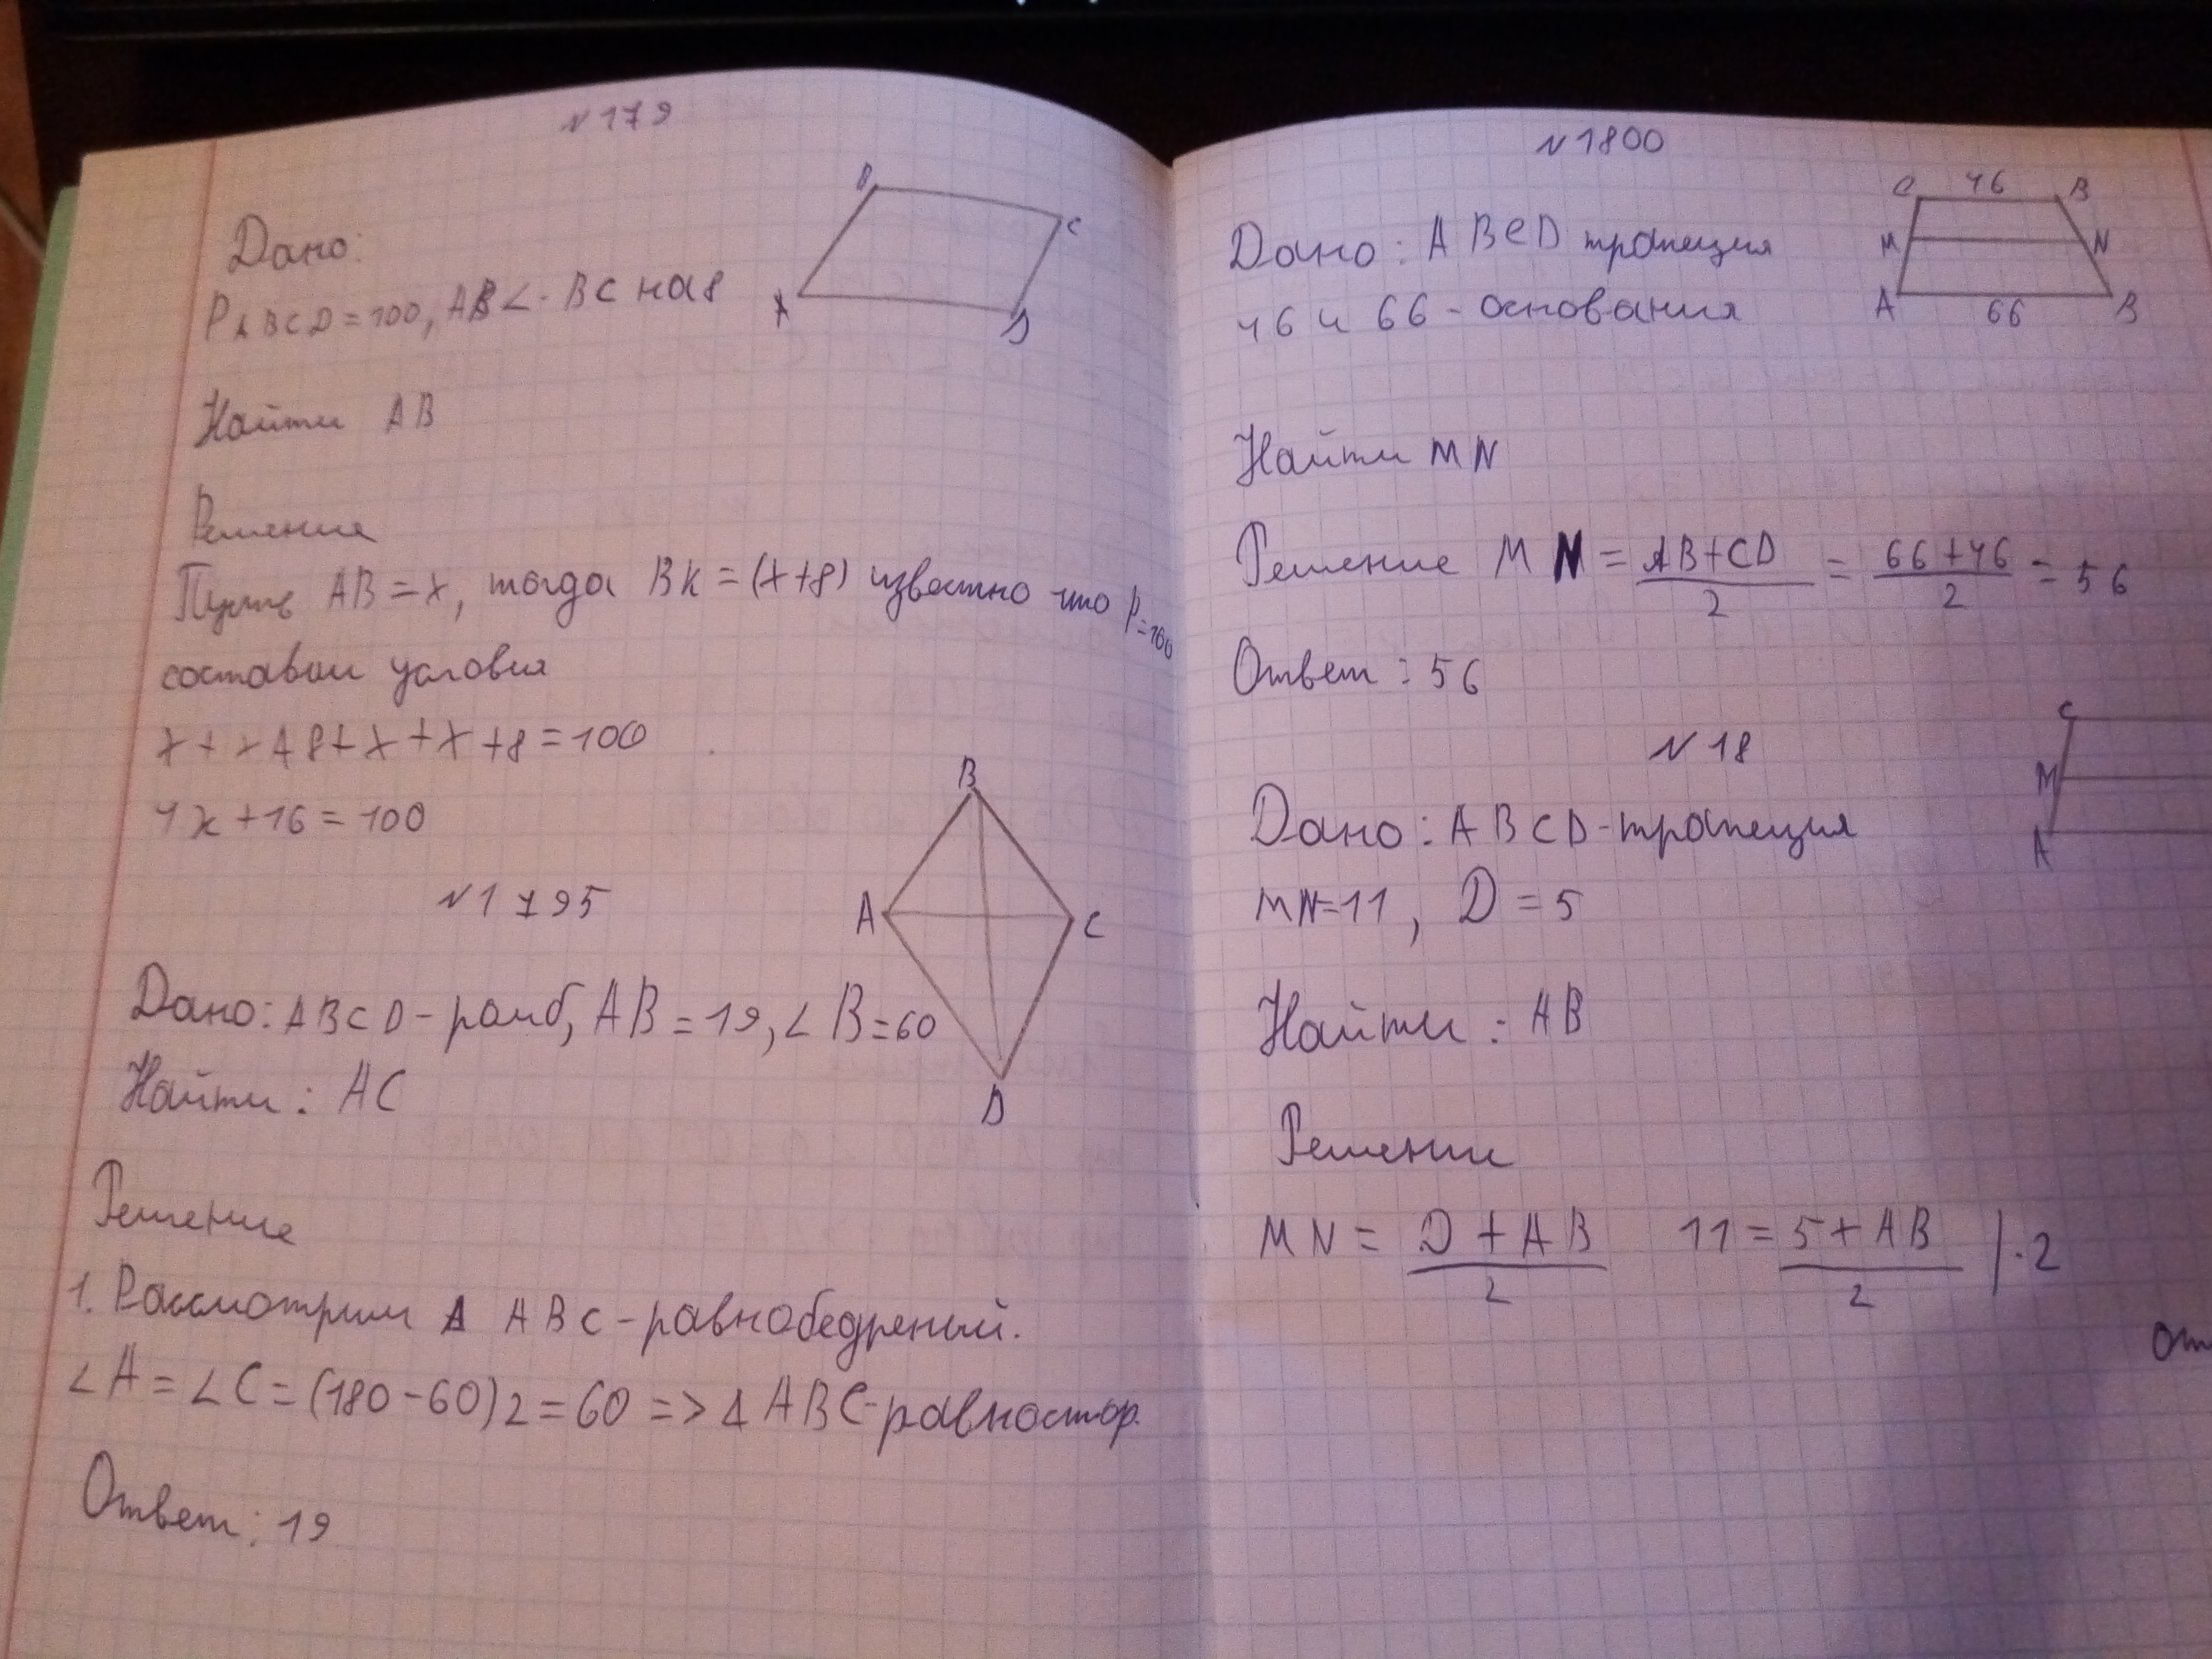 N 179
B
C
A
D
Дано:
P ABCD = 100, AB < BC на 8
Найти AB
Решение
Пусть AB = x, тогда BK = (x+8) известно что P=100
составим условия
x + x + 8 + x + x + 8 = 100
4x + 16 = 100
N 1795
B
A
C
D
Дано: ABCD - ромб, AB = 19, ∠B = 60
Найти: AC
Решение
1. Рассмотрим Δ ABC - равнобедреный.
∠A = ∠C = (180 - 60) 2 = 60 => Δ ABC - равностор.
Ответ: 19
N 1800
C 46 B
M N
A 66 B
Дано: ABCD трапеция
46 и 66 - основания
Найти MN
Решение MN = AB+CD / 2 = 66+46 / 2 = 56
Ответ: 56
N 18
C
M
A
Дано: ABCD - трапеция
MN = 11, D = 5
Найти: AB
Решение
MN = D + AB / 2 11 = 5 + AB / 2 | · 2
от